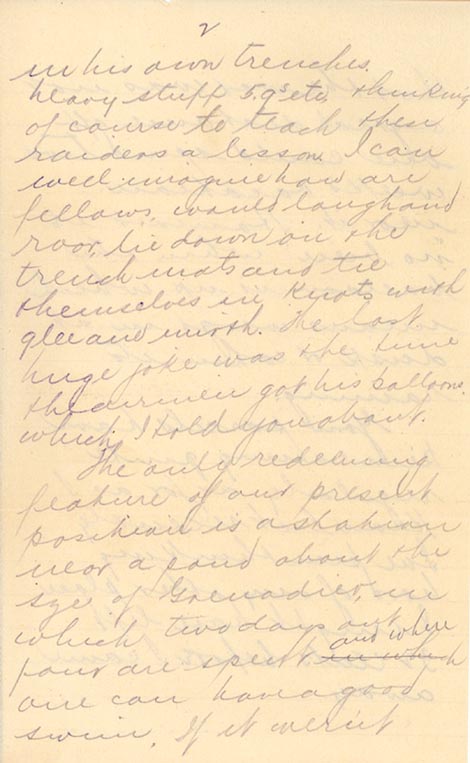 2
in his own trenches.
heavy stuff 5.9s etc. thinking
of course to teach these
raiders a lesson. I can
well imagine how are
fellows, would laugh and
roar, lie down on the
trench mats and tie
themselves in knots with
glee and mirth. The last
huge joke was the time
the airmen got his balloons.
which I told you about.
The only redeeming
feature of our present
position is a station
near a pond about the
size of Grenadier, in
which two days out
four are spent in which and where
one can have a good
swim. If it wern't